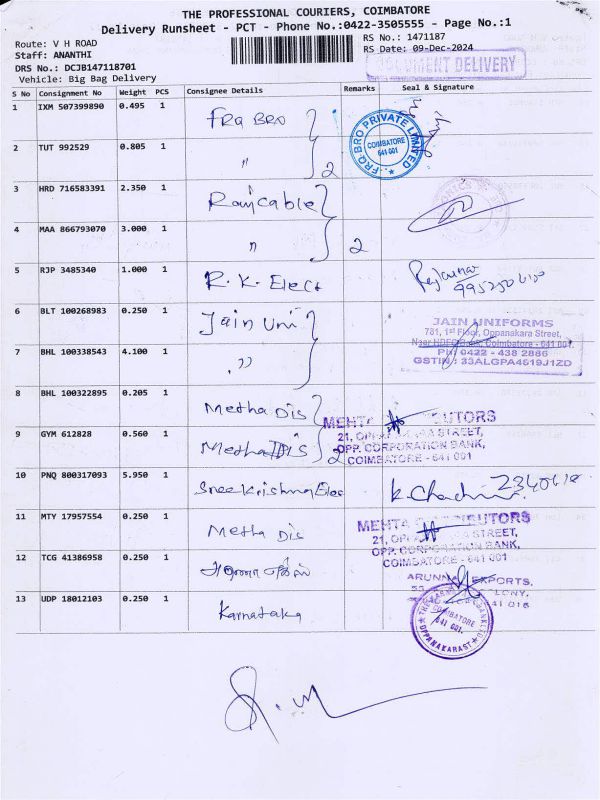 THE PROFESSIONAL COURIERS, COIMBATORE
Delivery Runsheet - PCT - Phone No.:0422-3505555 - Page No.:1
Route: V H ROAD
Staff: ANANTHI
DRS No.: DCJB147118701
Vehicle: Big Bag Delivery
RS No.: 1471187
RS Date: 09-Dec-2024
DOCUMENT DELIVERY
S No Consignment No Weight PCS Consignee Details Remarks Seal & Signature
1 IXM 507399890 0.495 1 FRQ BRO
FRQ BRO PRIVATE LIMITED
COIMBATORE
641 001
2 TUT 992529 0.805 1 " 2
3 HRD 716583391 2.350 1 Ramcable
4 MAA 866793070 3.000 1 " 2
5 RJP 3485340 1.000 1 R. K. Elect Rajkumar
6 BLT 100268983 0.250 1 Jain Uni
JAIN UNIFORMS
781, 1st Floor, Oppanakara Street,
Near HDFC Bank, Coimbatore - 641 001.
Ph: 0422 - 438 2886
GSTIN : 33ALGPA4619J1ZD
7 BHL 100338543 4.100 1 "
8 BHL 100322895 0.205 1 Metha Dis
MEHTA DISTRIBUTORS
9 GYM 612828 0.560 1 Metha Dis 2
21, OPPANAKARA STREET,
OPP. CORPORATION BANK,
COIMBATORE - 641 001
10 PNQ 800317093 5.950 1 Sree Krishna Elec
11 MTY 17957554 0.250 1 Metha Dis
MEHTA DISTRIBUTORS
21, OPPANAKARA STREET,
OPP. CORPORATION BANK,
COIMBATORE - 641 001
12 TCG 41386958 0.250 1
ARUNNA EXPORTS,
13 UDP 18012103 0.250 1 Karnataka
COIMBATORE
641 001.
OPPANAKARAST